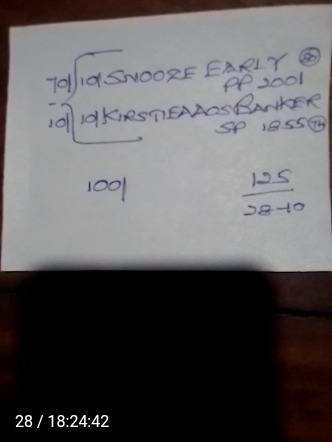 70/ 10/ SNOOZE EARLY
PP 2001
10/ 10/ KIRSTIEAAOSBANKER
SP 1855
100/
125
28-10
28 / 18:24:42